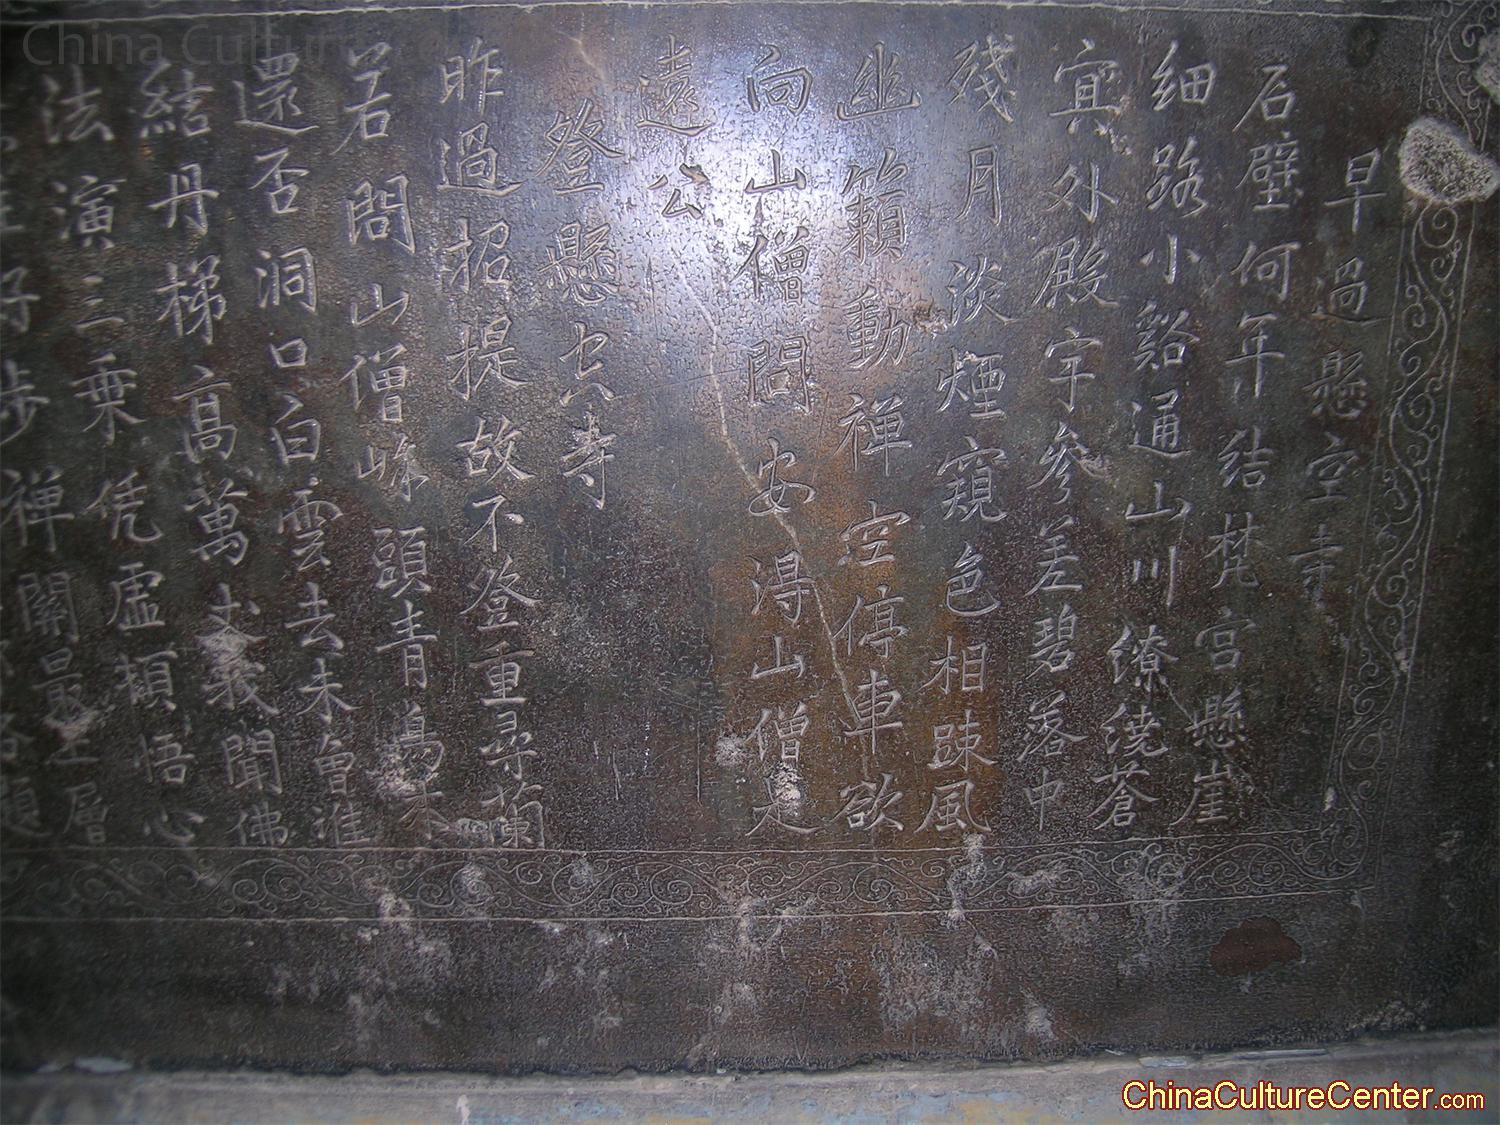 早過懸空寺
石壁何年結梵宮懸崖
細路小谿通山川繚繞蒼
寘外殿宇參差碧落中
殘月淡煙窺色相疎風
幽籟動禪空停車欲
向山僧問安得山僧是
遠公
登懸空寺
昨過招提故不登重尋蘭
若問山僧峰頭青鳥來
還否洞口白雲去未曾誰
結丹梯高萬丈我聞佛
法演三乘凭虛頓悟心
好步禪關最上層
China Culture
ChinaCultureCenter.com